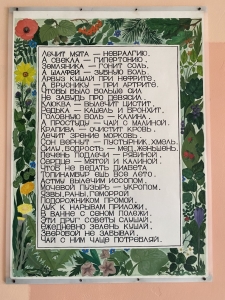 Лечит мята – невралгию,
А свекла – гипертонию,
Земляника – гонит соль,
А шалфей – зубную боль.
Арбуз кушай при нефрите,
А бруснику – при артрите.
Чтобы было больше сил
Не забудь про девясил.
Клюква – вылечит цистит
Редька – кашель и бронхит,
Головную боль – калина,
А простуды – чай с малиной.
Крапива – очистит кровь,
Лечит зрение морковь.
Сон вернут – пустырник, хмель,
Силу, бодрость – мед, женьшень,
Печень подлечи – рябиной,
Сердце – мятой и калиной.
Чтоб не ведать диабета
Топинамбур ешь всё лето.
Астму вылечим иссопом,
Мочевой пузырь – укропом.
Язвы, раны, геморрой
Подорожником промой.
Лык к нарывам приложи,
В ванне с сеном полежи.
Эти друг советы слушай,
Ежедневно зелень кушай,
Зверобой не забывай,
Чай с ним чаще потребляй.